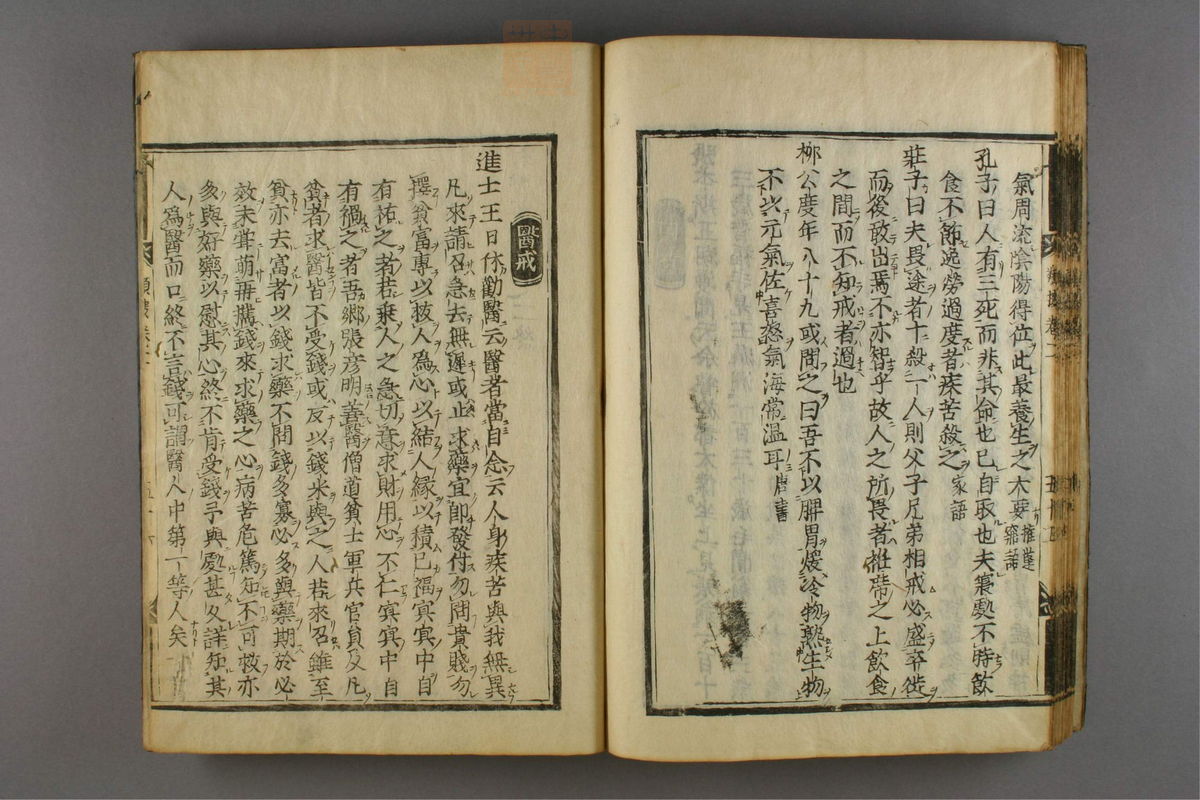 氣周流陰陽得位此最養生之大要
孔子曰人有三死而非其命也已自取也夫寢處不時飲
食不節逸勞過度者疾苦殺之家語
莊子曰夫畏途者十殺一人則父子兄弟相戒必盛卒徒
而後敢出焉不亦智乎故人之所畏者袵席之上飲食
之間而不知戒者過也
柳公度年八十九或問之曰吾不以脾胃煖冷物熟生物
不以元氣佐喜怒氣海常温耳唐書
醫戒
進士王日休勸醫云醫者當自念云人身疾苦與我無異
凡來請召急去無遲或止求藥宜即發付勿問貴賤勿
擇貧富專以救人為心以結人緣以積已福冥冥中自
有祐之者若乘人之急切意求財用心不仁冥冥中自
有禍之者吾鄉張彥明善醫僧道貧士軍兵官員及凡
貧者求醫皆不受錢或反以錢米與之人若來召雖至
貧亦去富者以錢求藥不問錢多寡必多與藥期於必
效未嘗萌再攜錢來求藥之心病苦危篤知不可救亦
多與好藥以慰其心終不肯受錢予與處甚久詳知其
人為醫而口終不言錢可謂醫人中第一等人矣